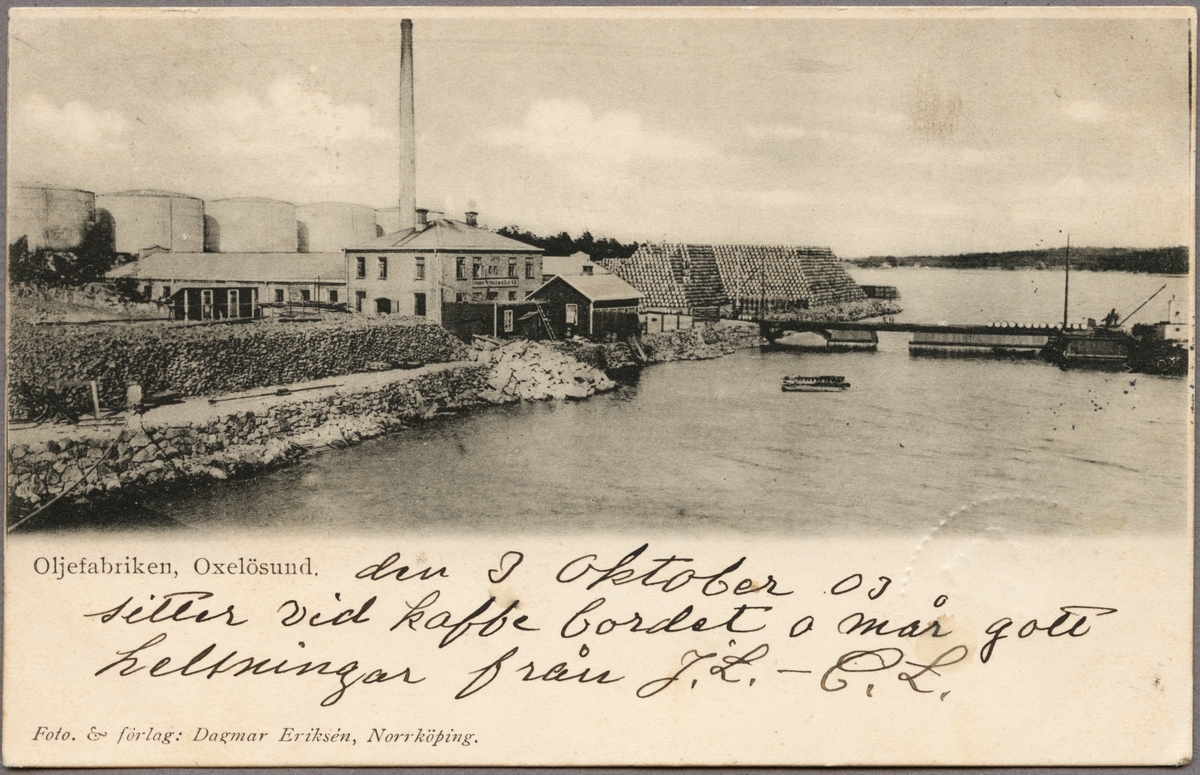 Oljefabriken, Oxelösund.
den 3 Oktober 03
sitter vid kaffe bordet o mår gott
helsningar från J.L. – C. L.
Foto. & förlag: Dagmar Eriksén, Norrköping.